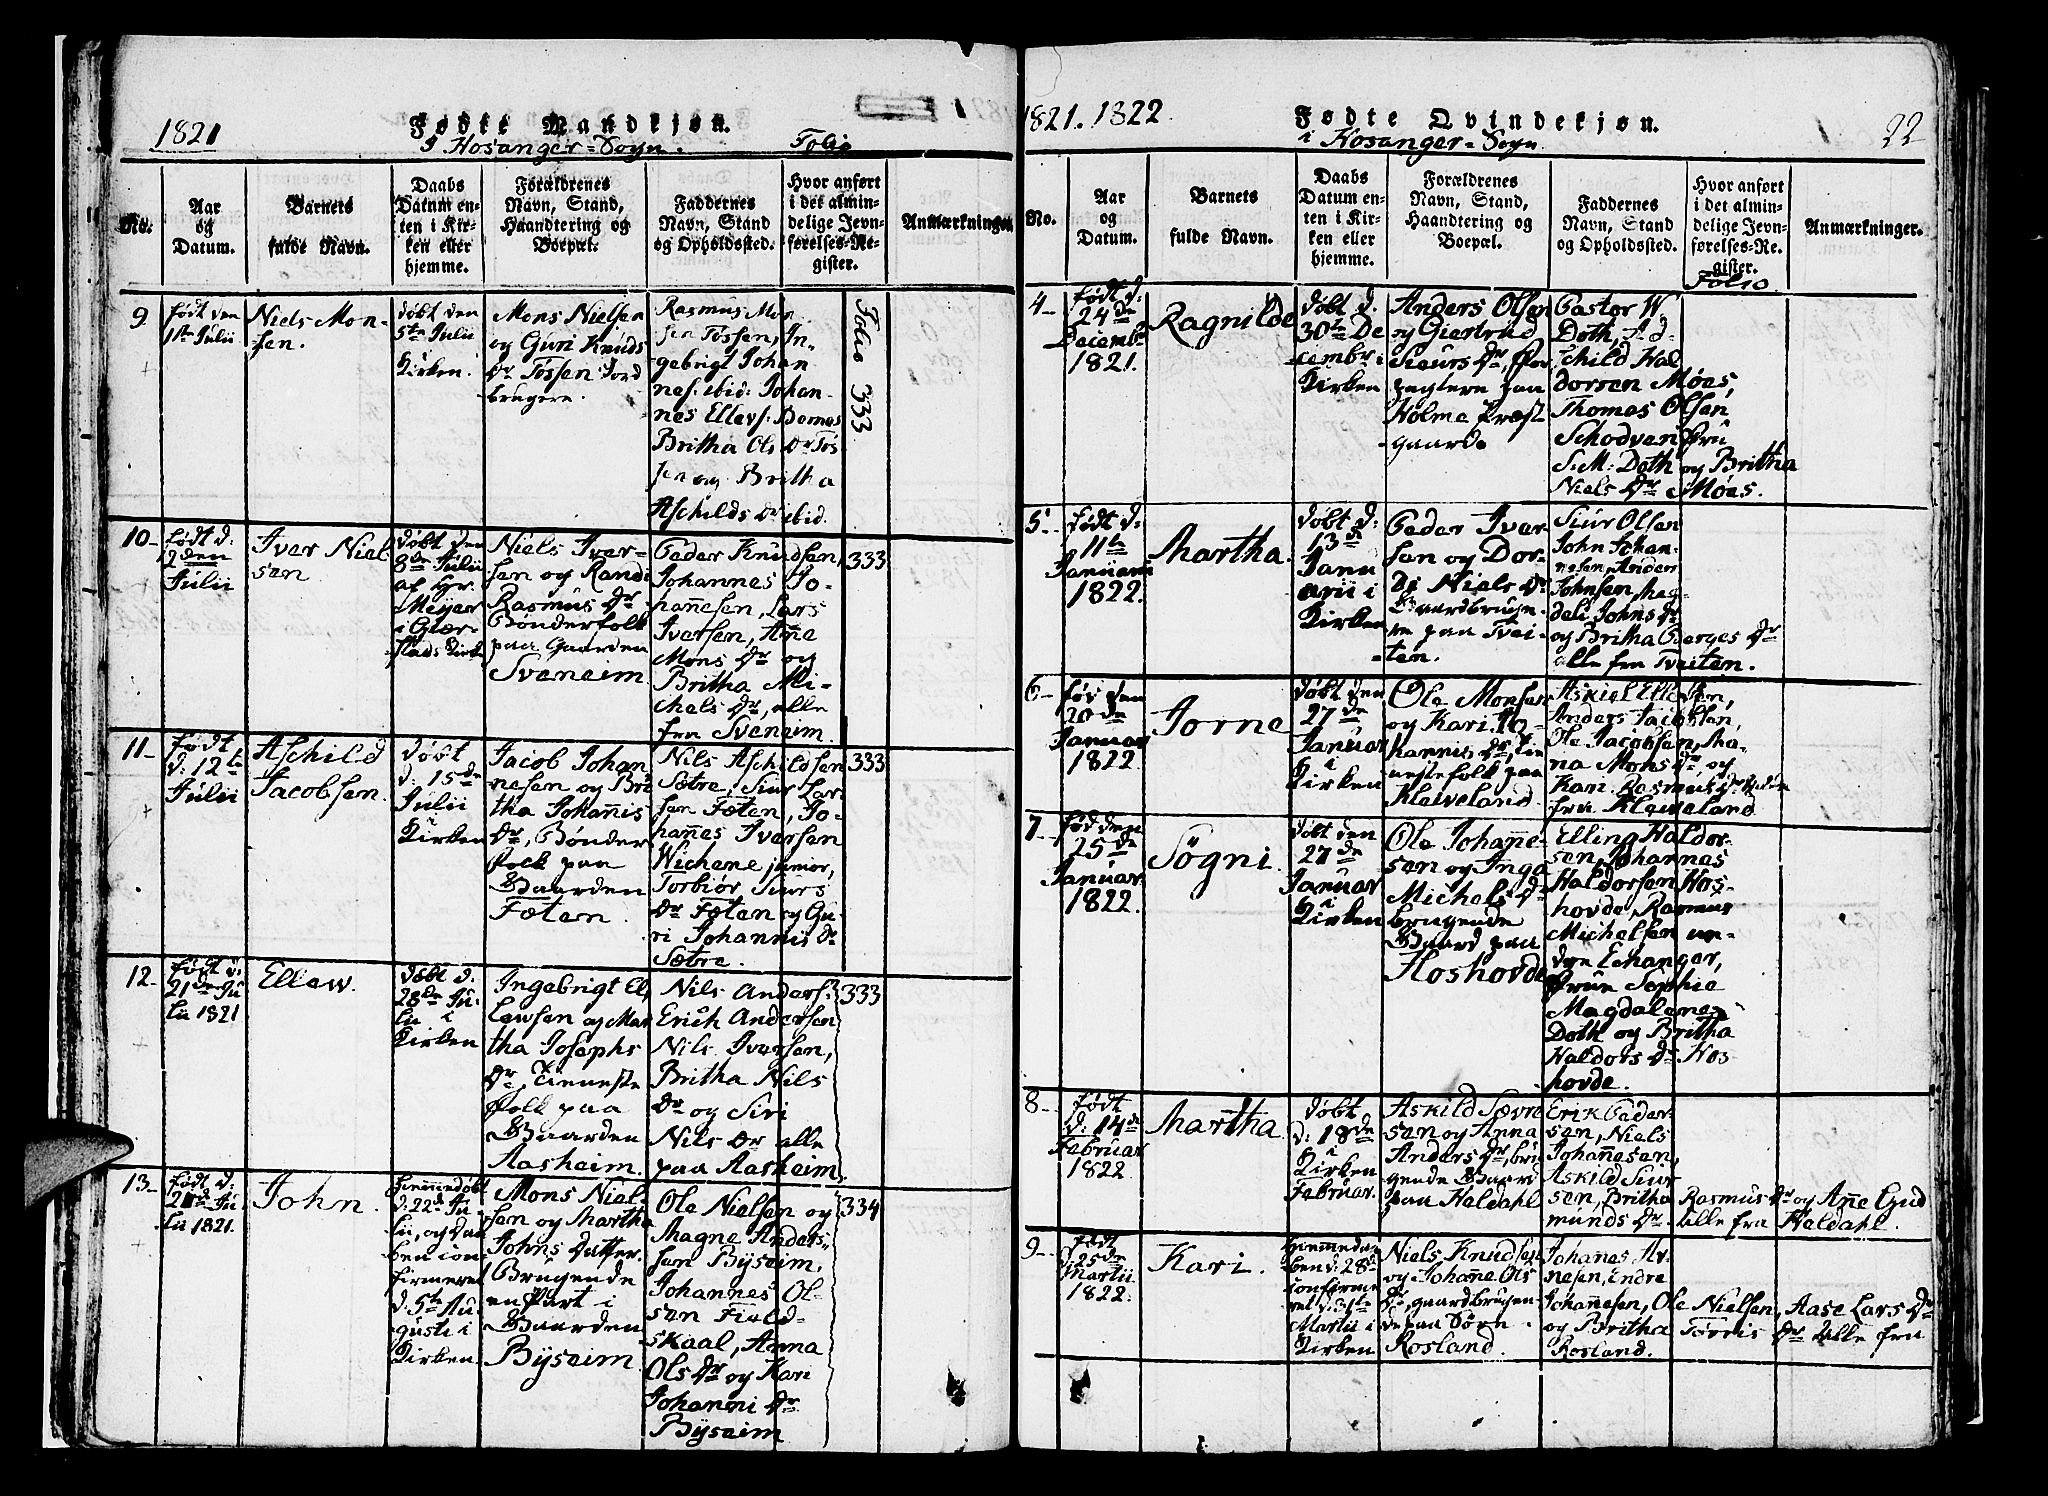 1821
Fødte Mandkjøn.
I Hosanger=Sogn.
Folio
No.
Aar
og
Datum.
Barnets
fulde Navn.
Daabs
Datum en-
ten i Kir-
ken eller
hjemme.
Forældrenes
Navn, Stand,
Haandtering og
Boepæl.
Faddernes
Navn, Stand
og Opholdssted.
Hvor anført
i det almin-
delige Jevn-
førelses-Re-
gister.
Anmærkninger.
9
født den
1ste Julii
Niels Mon-
sen.
døbt den
5te Julii
Kirken.
Mons Nielsen
og Guri Knuds
Dr Tossen Jord
brugere.
Rasmus Mon
sen Tossen, In-
gebrigt Johan
nes: ibid: Johan-
nes Ellevs: Bomas
Britha Ols Dr Tøs
sen og Britha
Aschilds Dr ibid.
Folio 333
10-
født d:
2den
Julii
Iver Niel
sen
Døbt den
8de Julii
af Hr.
Meyer
i Giær-
stads Kirke
Niels Iver-
sen og Randi
Rasmus Dr
Bønderfolk
paa Gaarden
Sveneim.
Peder Knudsen,
Johannes Jo-
hannesen, Lars
Iversen, Ane
Mons Dr og
Britha Mi-
chels Dr, alle
fra Sveneim.
333
11-
født
d: 12te
Julii
Aschild
Jacobsen.
Døbt
d: 15de
Julii
i
Kirken
Jacob Johan
nesen og Bri
tha Johannis
Dr, Bønder
folk paa
Gaarden
Fæten.
Nils Aschildsen
Sætre, Siur Lar
sen Fæten, Jo-
hannes Iversen
Wichene junior,
Torbiør Siurs
Dr Fæten og Gu-
ri Johannis Dr
Sætre.
333
12-
født d:
21de Ju
lii 1821
Ellew.
Døbt d:
28de Ju-
lii i
Kirken
Ingebrigt El,
lewsen og Mar
tha Josephs
Dr, Tieneste
folk paa
Gaarden
Aasheim.
Nils Anders:
Erich Andersen
Nils Iversen,
Britha Nils
Dr og Siri
Nils Dr alle
paa Aasheim.
333
13-
født d:
21de Ju
lii 1821.
John.
Hiemmedøbt
d: 22de Ju
lii, og Daa
ben con
firmeret
d: 5te Au
gusti i
Kirken
Mons Niel-
sen og Martha
Johns Datter
Brugende
en Part i
Gaarden
Bÿseim.
Ole Nielsen og
Magne Anders-
sen Bÿseim,
Johannes Ol-
sen Fiæld-
skaal, Anna
Ols Dr og Kari
Johanni Dr
Bÿseim
334
1821. 1822.
Fødte Qvindekjøn.
i Hosanger=Sogn.
22
No.
Aar
og
Datum.
Barnets
fulde Navn.
Daabs
Datum en-
ten i Kir-
ken eller
hjemme.
Forældrenes
Navn, Stand,
Haandtering og
Boepæl.
Faddernes
Navn, Stand
og Opholdssted.
Hvor anført
i det almin-
delige Jevn-
førelses-Re-
gister.
Folio.
Anmærkninger.
4-
født d:
24de
Decemb
1821.
Ragnilde
Døbt d.
30te De
cembr i
Kirken
Anders Olsen
og Giertrud
Siurs Dr, For
pagtere paa
Holme Præst
gaarde
Pastor W
Doth, As-
schild Hal
dorsen Møes,
Thomas Olsen
Schodven Fru
S: M: Doth og Britha
Niels Dr Møes.
5-
født d:
11te
Januarii
1822.
Martha.
Døbt d:
13de
Janu
arii i
Kirken
Peder Iver
sen og Dor-
di Niels Dr
Gaardbruge-
re paa Tvei-
ten.
Siur Olsen
John Johan-
nesen, Anders
Johnsen, Mag-
deli Johns Dr
og Britha Børges Dr
alle fra Tveiten.
6-
fød den
20de
Januar
1822
Jorne
døbt den
27de
Januar
i
Kirken
Ole Monsen
og Kari Jo-
hannis Dr, tie
nestefolk paa
Kleiveland.
Askiel Ellevsen,
Anders Jacobsen,
Ole Jacobsen, Ma-
na Mons Dr, og
Kari Rasmus Dr
fra Kleiveland
7-
fød den
25de
Januar
1822.
Søgni.
døbt den
27de
Januar
i
Kirken
Ole Johanne-
sen og Inga
Michels Dr
brugende
Gaard paa
Hoshovde
Elling Haldor-
sen, Johannes
Haldorsen Hos-
hovde, Rasmus
Michelsen un-
dre Echanger,
Frue Sophie
Magdalene
Doth og Britha
Haldors Dr Hos
hovde.
8-
født
d: 14de
Februar
1822
Martha
Døbt
d: 18de
i
Kirken
Februar.
Askild Sævre
sen og Anna
Anders Dr, bru
gende Gaard
paa Haldahl
Erik Peder-
sen, Niels
Johannesen,
Askild Siur
sen, Britha Rasmus Dr og Ane Gud
munds Dr alle fra Haldahl.
9-
født
25de
Martii
1822.
Kari.
Hiemmedøb
ben d: 28de
confirme
ret d: 31te
Martii i
Kirken
Niels Knudsen
og Johanne Ols
Dr, gaardbrugen
de paa Søren
Rosland.
Johanes Ar-
nesen, Endre
Johannesen, Ole Nielsen, Aase Lars Dr
og Britha Torris Dr alle fra
Rosland.